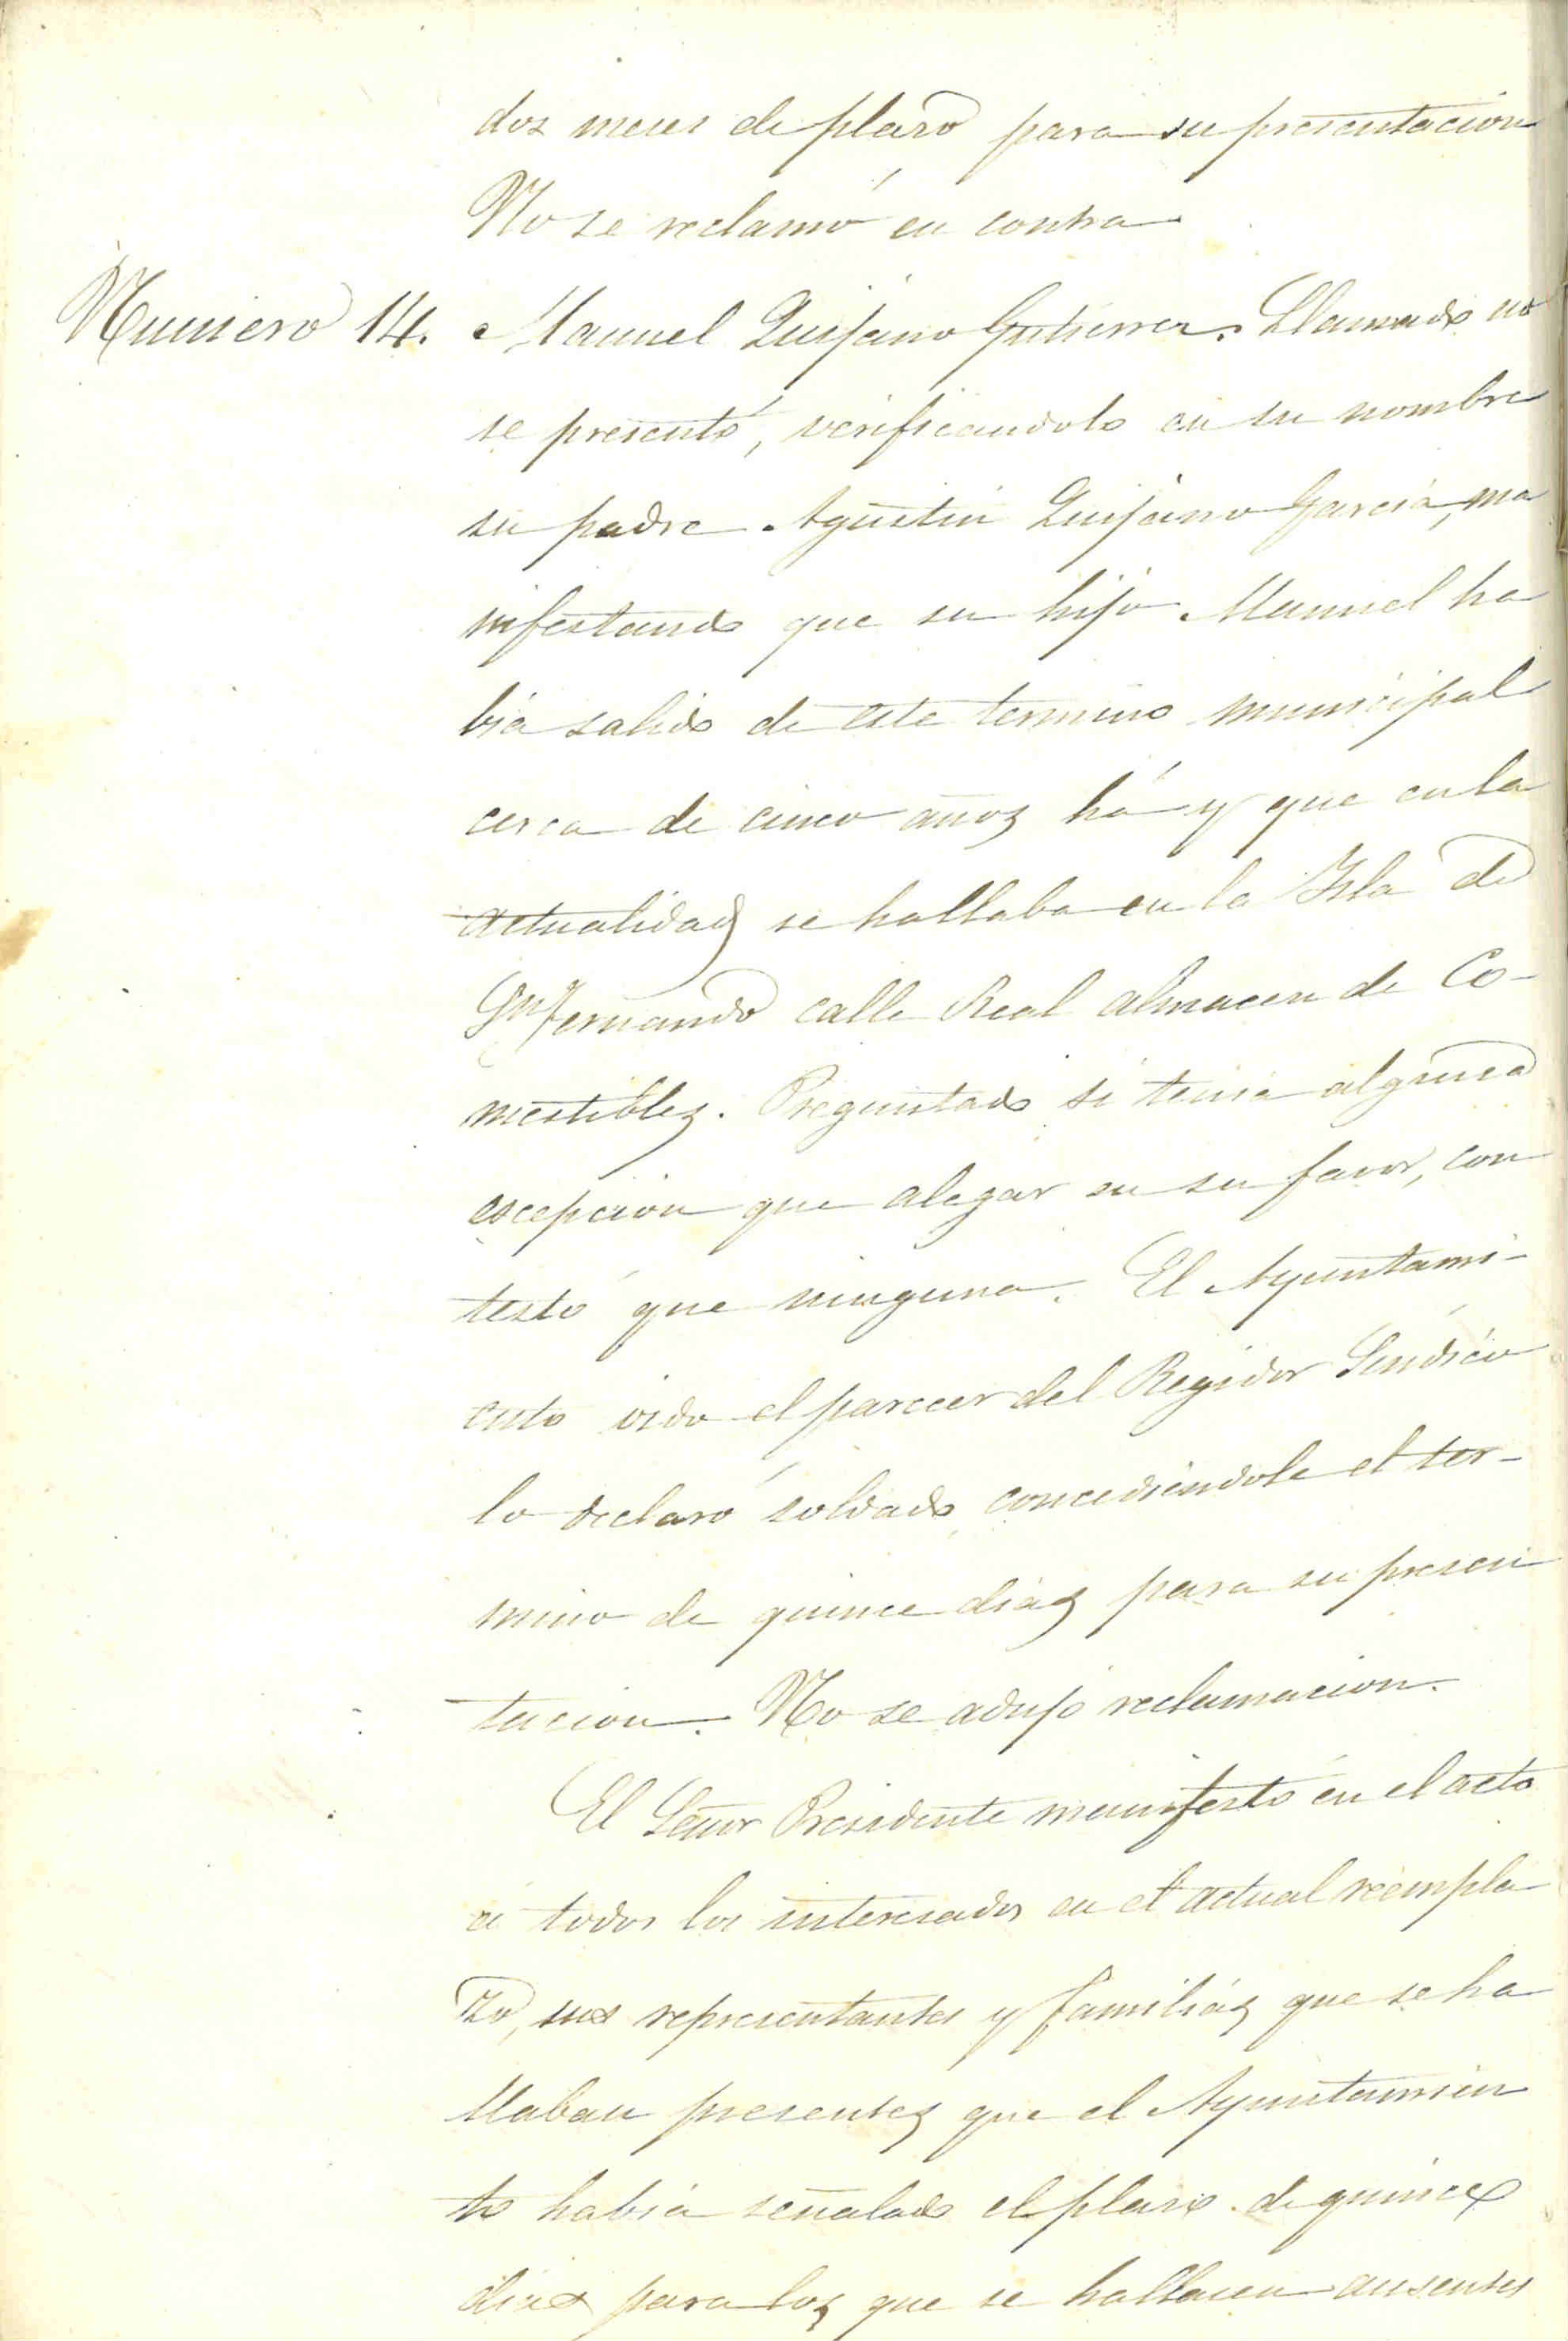 dos meses de plazo para su presentacion
No se reclamó en contra
Numero 14. Manuel Quijano Gutierrez. Llamado no
se presentó, verificandolo en su nombre
su padre Agustin Quijano Garcia, ma
nifestando que su hijo Manuel ha
bia salido de este termino municipal
cerca de cinco años há y que en la
actualidad se hallaba en la Isla de
Sn Fernando calle Real almacen de Co-
mestibles. Preguntado si tenia alguna
escepcion que alegar en su favor, con
testó que ninguna. El Ayuntami-
ento oido el parecer del Regidor Sindico
lo declaró soldado concediendole el ter-
mino de quince dias para su presen
tacion. No se adujo reclamacion.
El Señor Presidente manifestó en el acto
á todos los interesados en el actual reempla
zo, sus representantes y familias que se ha
llaban presentes que el Ayuntamien
to habia señalado el plazo de quince
dias para los que se hallasen ausentes